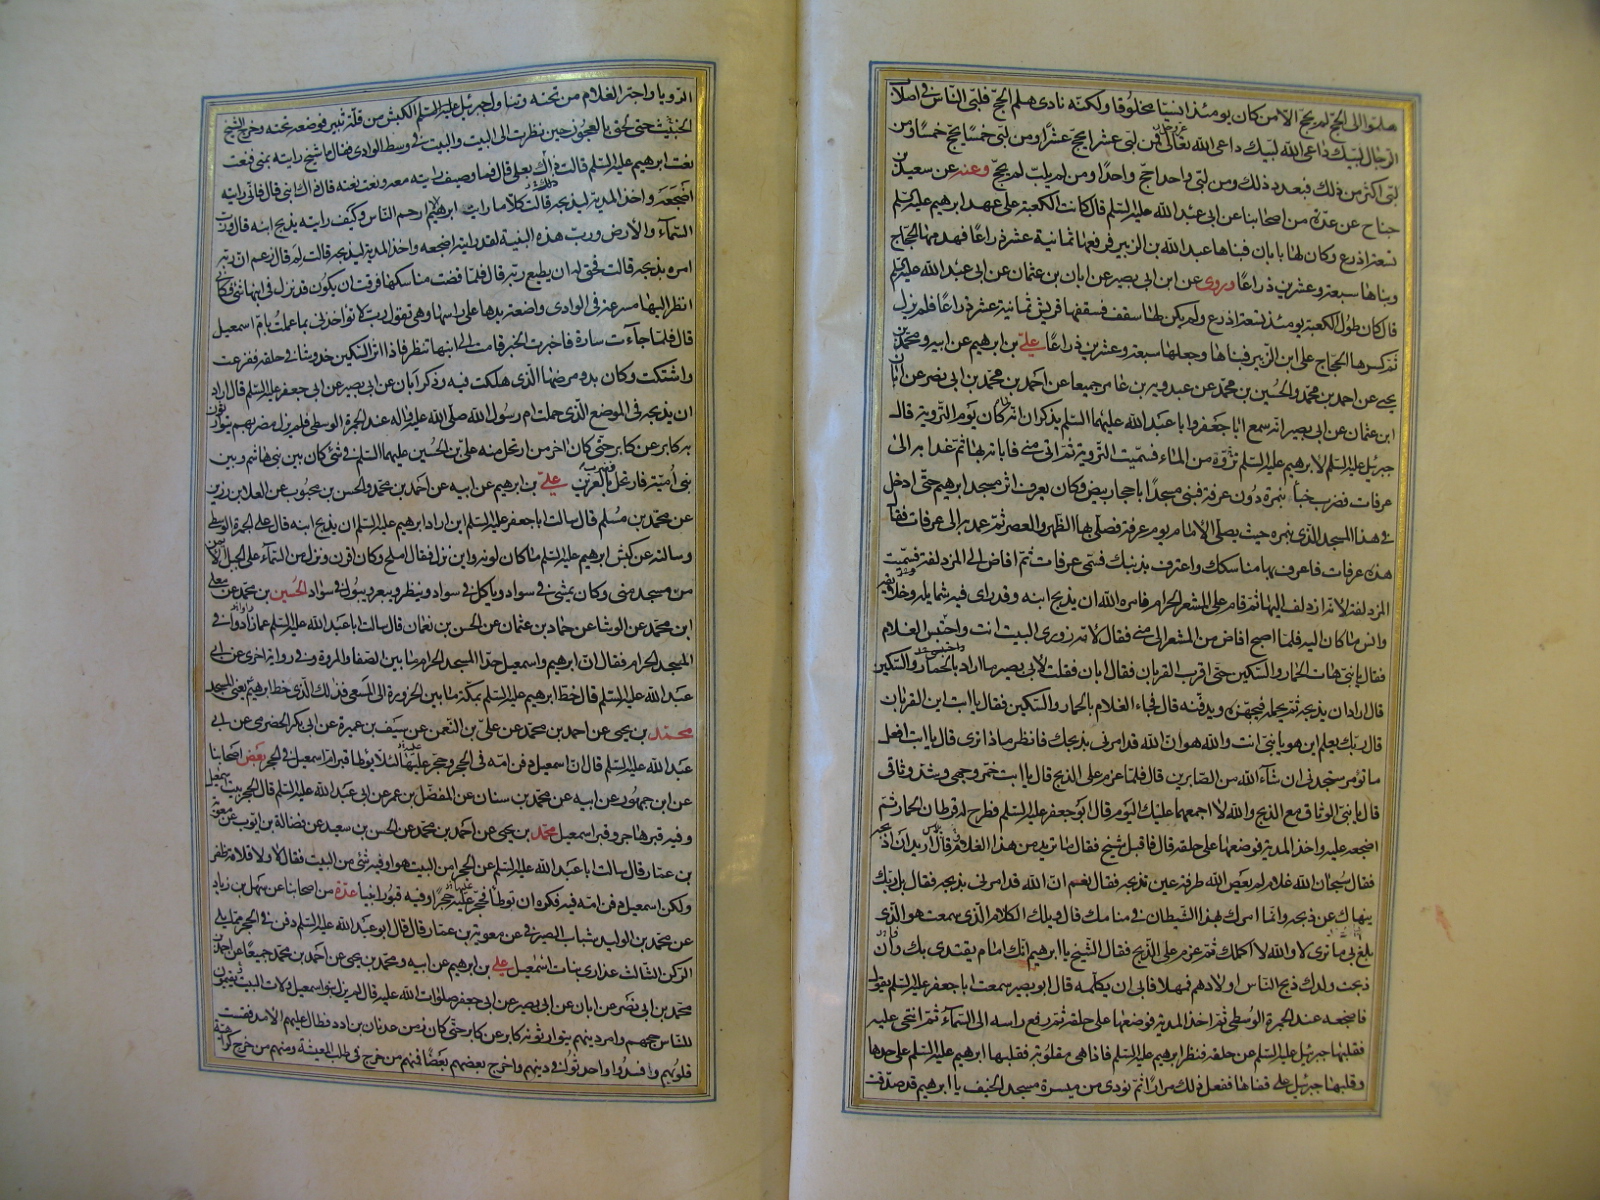 هلموا الى الحج لم يحج الا من كان يومئذ انسيا مخلوقا ولكنه نادى هلم الحج فلبى الناس في اصلاب
الرجال لبيك داعى الله لبيك داعى الله تعالى فمن لبى عشرا يحج عشرا ومن لبى خمسا يحج خمسا ومن
لبى اكثر من ذلك فبعدد ذلك ومن لبى واحدا حج واحدا ومن لم يلب لم يحج وعنه عن سعيد بن
جناح عن عدة من اصحابنا عن ابى عبد الله عليه السلم قال كانت الكعبة على عهد ابرهيم عليه السلم
تسعة اذرع وكان لها بابان فبناها عبد الله بن الزبير فرفعها ثمانية عشر ذراعا فهدمها الحجاج
وبناها سبعة وعشرين ذراعا وروى عن ابن ابى بصير عن ابان بن عثمان عن ابى عبد الله عليه السلم
قال كان طول الكعبة يومئذ تسعة اذرع ولم يكن لها سقف فسقفها قريش ثمانية عشر ذراعا فلم يزل
ثم كسرها الحجاج على ابن الزبير فبناها وجعلها سبعة وعشرين ذراعا على بن ابرهيم عن ابيه ومحمد بن
يحيى عن احمد بن محمد والحسين بن محمد عن عبدويه بن عامر جميعا عن احمد بن محمد بن ابى نصر عن ابان
ابن عثمان عن ابى بصير انه سمع ابا جعفر وابا عبد الله عليهما السلم يذكران انه كان يوم التروية قال
جبرئيل عليه السلم لابرهيم عليه السلم تروه من الماء فسميت التروية ثم اتى منى فاباته بها ثم غدا به الى
عرفات فضرب خباه بنمرة دون عرفة فبنى مسجدا باحجار بيض وكان يعرف اثر مسجد ابرهيم حتى ادخل
في هذا المسجد الذى بنمرة حيث يصلى الامام يوم عرفة فصلى بها الظهر والعصر ثم عمد به الى عرفات فقال
هذه عرفات فاعرف بها مناسكك واعترف بذنبك فسمى عرفات ثم افاض الى المزدلفة فسميت
المزدلفة لانه ازدلف اليها ثم قام على المشعر الحرام فامره الله ان يذبح ابنه وقد راى فيه شمايله وخلايقه
وانس ما كان اليه فلما اصبح افاض من المشعر الى منى فقال لامه زورى البيت انت واحتبس الغلام
فقال يا بنى هات الحمار والسكين حتى اقرب القربان فقال ابان فقلت لابى بصير ما اراد بالحمار والسكين
قال اراد ان يذبحه ثم يحمله فيجهزه ويدفنه قال فجاء الغلام بالحمار والسكين فقال يا ابت اين القربان
قال ربك يعلم اين هو يا بنى انت والله هو ان الله قد امرنى بذبحك فانظر ماذا ترى قال يا ابت افعل
ما تؤمر ستجدنى ان شاء الله من الصابرين قال فلما عزم على الذبح قال يا ابت خمر وجهى وشد وثاقى
قال يا بنى الوثاق مع الذبح والله لا اجمعهما عليك اليوم قال ابو جعفر عليه السلم فطرح له قرطان الحمار ثم
اضجعه عليه واخذ المدية فوضعها على حلقه قال فاقبل شيخ فقال ما تريد من هذا الغلام قال اريد ان اذبحه
فقال سبحان الله غلام لم يعص الله طرفة عين تذبحه فقال نعم ان الله قد امرنى بذبحه فقال بل ربك
ينهاك عن ذبحه وانما امرك بهذا الشيطان في منامك قال ويلك الكلام الذى سمعت هو الذى
بلغ بى ما ترى لا والله لا اكلمك ثم عزم على الذبح فقال الشيخ يا ابرهيم انك امام يقتدى بك وان
ذبحت ولدك ذبح الناس اولادهم فمهلا فابى ان يكلمه قال ابو بصير سمعت ابا جعفر عليه السلم يقول
فاضجعه عند الجمرة الوسطى ثم اخذ المدية فوضعها على حلقه ثم رفع راسه الى السماء ثم انتحى عليه
فقلبها جبرئيل عليه السلم عن حلقه فنظر ابرهيم عليه السلم فاذا هى مقلوبة فقلبها ابرهيم عليه السلم على حدها
وقلبها جبرئيل على قفاها ففعل ذلك مرارا ثم نودى من ميسرة مسجد الخيف يا ابرهيم قد صدقت
الرويا واجتر الغلام من تحته وتناول جبرئيل عليه السلم الكبش من قلة ثبير فوضعه تحته وخرج الشيخ
الخبيث حتى لحق بالعجوز حين نظرت الى البيت والبيت في وسط الوادى فقال ما شيخ رايته بمنى فنعت
نعت ابرهيم عليه السلم قالت ذاك بعلى قال فما وصيف رايته معه ونعت نعته قال ذاك ابنى قال فانى رايته
اضجعه واخذ المدية ليذبحه قالت كلا ما رايت ابرهيم ارحم الناس وكيف رايته يذبح ابنه قال ورب
السماء والارض ورب هذه البنية لقد رايته اضجعه واخذ المدية ليذبحه قالت لم قال زعم ان ربه
امره بذبحه قالت فحق له ان يطيع ربه قال فلما قضت مناسكها فرقت ان يكون قد نزل في ابنها شئ فكانى
انظر اليها مسرعة في الوادى واضعة يدها على راسها وهى تقول رب لا تؤاخذنى بما عملت بام اسمعيل
قال فلما جاءت سارة فاخبرت الخبر قامت الى ابنها تنظر فاذا اثر السكين خدوشا في حلقه ففزعت
واشتكت وكان بدو مرضها الذى هلكت فيه وذكر ابان عن ابى بصير عن ابى جعفر عليه السلم قال اراد
ان يذبحه في الموضع الذى حملت ام رسول الله صلى الله عليه واله عند الجمرة الوسطى فلم يزل مضربهم يتوارثون
به كابر عن كابر حتى كان اخر من ارتحل منه على بن الحسين عليهما السلم في شئ كان بين بنى هاشم وبين
بنى امية فارتحل فضرب بالعرين على بن ابرهيم عن ابيه عن احمد بن محمد والحسن بن محبوب عن العلا بن رزين
عن محمد بن مسلم قال سالت ابا جعفر عليه السلم اين اراد ابرهيم عليه السلم ان يذبح ابنه قال على الجمرة الوسطى
وسالته عن كبش ابرهيم عليه السلم ما كان لونه واين نزل فقال املح وكان اقرن ونزل من السماء على الجبل الايمن
من مسجد منى وكان يمشى في سواد وياكل في سواد وينظر ويبعر ويبول في سواد الحسين بن محمد عن معلى
ابن محمد عن الوشا عن حماد بن عثمان عن الحسن بن نعمان قال سالت ابا عبد الله عليه السلم عما زادوا في
المسجد الحرام فقال ان ابرهيم واسمعيل حدا المسجد الحرام ما بين الصفا والمروة وفى رواية اخرى عن ابى
عبد الله عليه السلم قال خط ابرهيم عليه السلم بمكة ما بين الحزورة الى المسعى فذلك الذى خط ابرهيم يعنى المسجد
محمد بن يحيى عن احمد بن محمد عن على بن النعمن عن سيف بن عميرة عن ابى بكر الحضرمى عن ابى
عبد الله عليه السلم قال ان اسمعيل دفن امه في الحجر وحجر عليها لئلا يوطا قبر ام اسمعيل في الحجر بعض اصحابنا
عن ابن جمهور عن ابيه عن محمد بن سنان عن المفضل بن عمر عن ابى عبد الله عليه السلم قال الحجر بيت اسمعيل
وفيه قبر هاجر وقبر اسمعيل محمد بن يحيى عن احمد بن محمد عن الحسن بن سعيد عن فضالة بن ايوب عن معوية
بن عمار قال سالت ابا عبد الله عليه السلم عن الحجر امن البيت هو او فيه شئ من البيت فقال لا ولا قلامة ظفر
ولكن اسمعيل دفن امه فيه فكره ان توطا فحجر عليه حجرا وفيه قبور انبيا عدة من اصحابنا عن سهل بن زياد
عن محمد بن الوليد شباب الصيرفى عن معوية بن عمار قال قال ابو عبد الله عليه السلم دفن في الحجر مما يلى
الركن الثالث عذارى بنات اسمعيل على بن ابرهيم عن ابيه ومحمد بن يحيى عن احمد بن محمد جميعا عن احمد بن
محمد بن ابى نصر عن ابان عن ابى بصير عن ابى جعفر صلوات الله عليه قال لم يزل بنو اسمعيل ولات البيت يقيمون
للناس حجهم وامر دينهم يتوارثونه كابر عن كابر حتى كان زمن عدنان بن ادد فطال عليهم الامد فقست
قلوبهم وافسدوا واحدثوا في دينهم واخرج بعضهم بعضا فمنهم من خرج في طلب المعيشة ومنهم من خرج كراهية